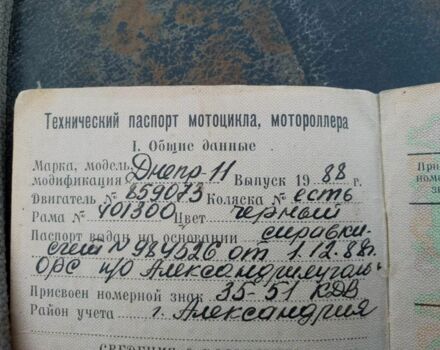 Технический паспорт мотоцикла, мотороллера
I. Общие данные
Марка, модель,
модификация Днепр-11 Выпуск 1988 г.
Двигатель № 859073 Коляска № есть
Рама № 701300 Цвет черный
Паспорт выдан на основании справки-
счет N 984526 от 1.12.88г.
ОРС п/о Александрияуголь
Присвоен номерной знак 35-51 КДВ
Район учета г. Александрия